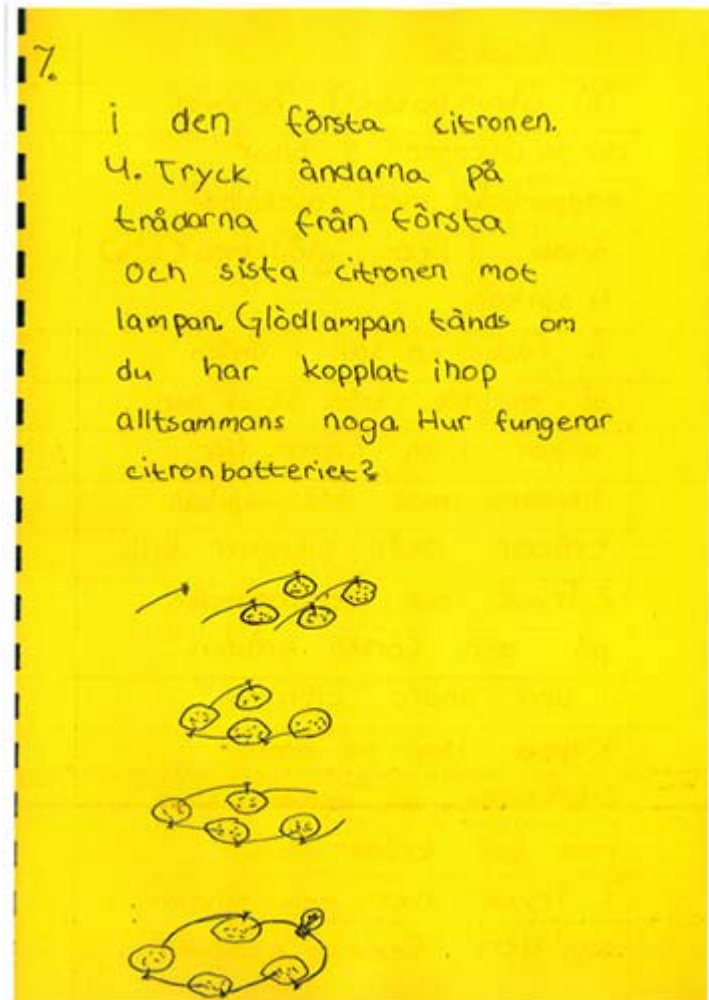 7.
i den första citronen.
4. Tryck ändarna på
trådarna från första
Och sista citronen mot
lampan. Glödlampan tänds om
du har kopplat ihop
alltsammans noga. Hur fungerar
citronbatteriet?